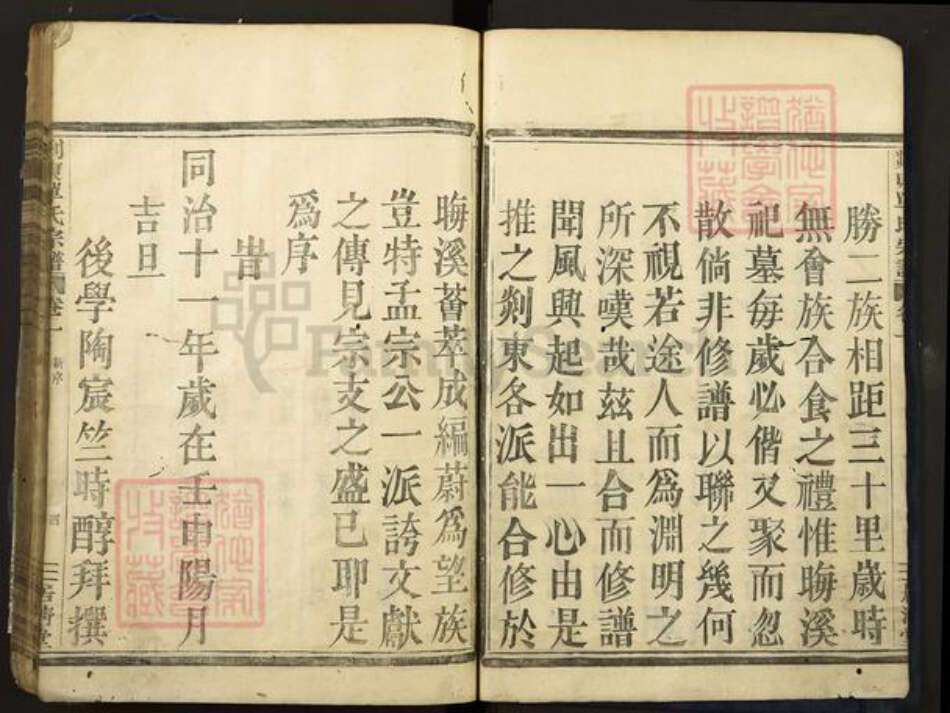 勝二族相距三十里歲時
無會族合食之禮惟晦溪
祀墓每歲必偕又聚而忽
散倘非修譜以聯之幾何
不視若途人而為淵明之
所深嘆哉玆且合而修譜
聞風興起如出一心由是
推之剡東各派能合修於
晦溪薈萃成編蔚為望族
豈特孟宗公一派誇文獻
之傳見宗支之盛已耶是
爲序
旹
同治十一年歲在壬申陽月
吉旦
後學陶宸竺時醇拜撰
氏宗譜 卷一 新序 四
FamilySearch